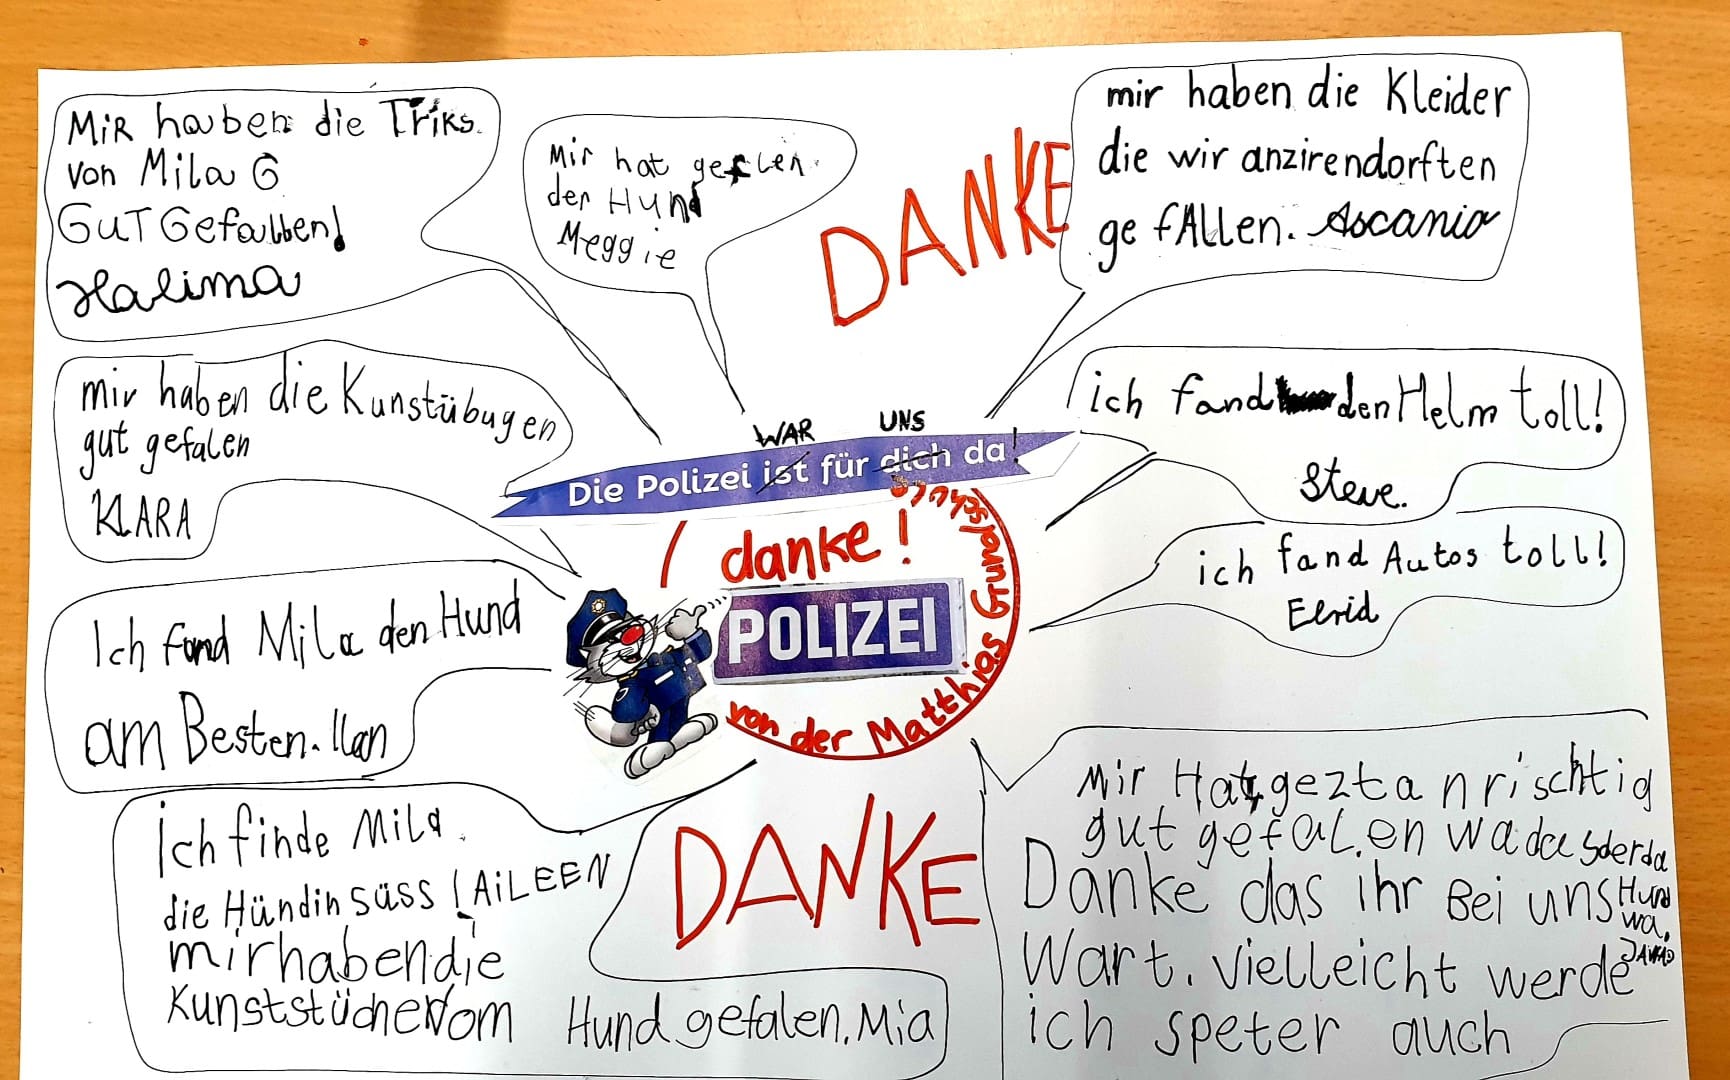 MiR haben die Triks
von Mila G
GuT Gefallen!
Halima
Mir hat
der Hund
Meggie
DANKE
mir haben die Kleider
die wir anzirendorften
ge fAllen. Ascania
mir haben die Kunstübugen
gut gefalen
KlARA
WAR UNS
Die Polizei ist für dich da!
ich fand den Helm toll!
Steve.
danke!
POLIZEI
von der Matthias Grundschule
ich fand Autos toll!
Eerid
Ich fand Mila den Hund
am Besten. Ilan
ich finde Mila
die Hündin süss! AiLEEN
mir haben die
Kunststücher Vom Hund gefalen. Mia
DANKE
Mir Hat gezta n rischtig
gut gefalen wa das der da
Hund
wa.
JAWAD
Danke das ihr Bei uns
Wart. Vielleicht werde
ich speter auch